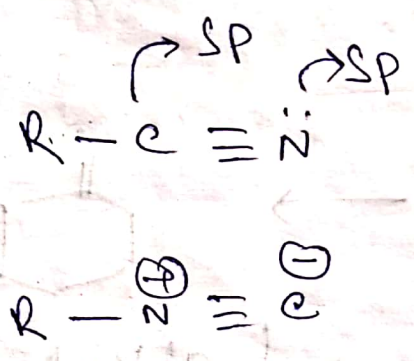 SP
SP
R - C ≡ N̈
⊕ ⊖
R - N ≡ C